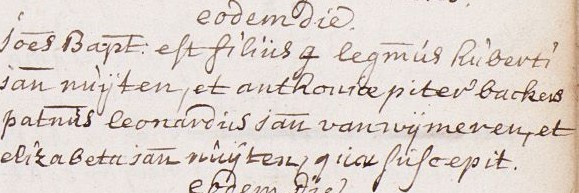 eodem die.
joēs Bapt: est filius q legm̄us huberti
jan nuijten, et anthonia piter backers
patn̄us leonardus jan van wijmeren, et
elizabeta jan nuijten, qua suscepit.
eodem die